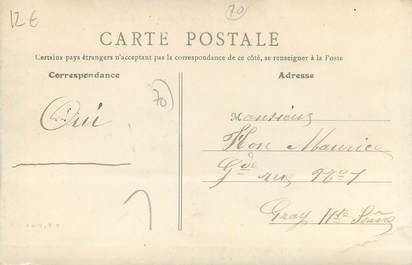 12 €
70
CARTE POSTALE
Certains pays étrangers n'acceptant pas la correspondance de ce côté, se renseigner à la Poste
Correspondance
Adresse
70
Oui
Monsieur
Flon Maurice
Gde rue No 7
Gray Hte Saône